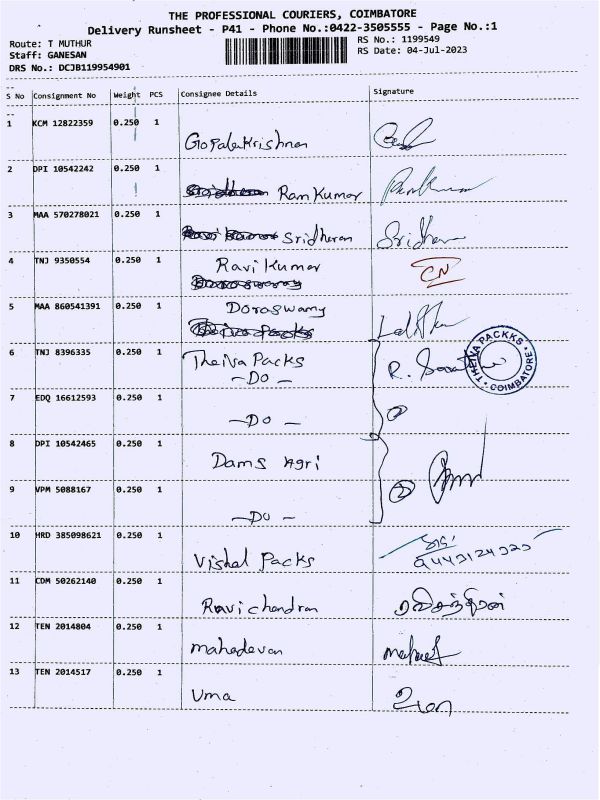 THE PROFESSIONAL COURIERS, COIMBATORE
Delivery Runsheet - P41 - Phone No.:0422-3505555 - Page No.:1
Route: T MUTHUR
Staff: GANESAN
DRS No.: DCJB119954901
RS No.: 1199549
RS Date: 04-Jul-2023
S No Consignment No Weight PCS Consignee Details Signature
1 KCM 12822359 0.250 1
Gopalakrishnan
2 DPI 10542242 0.250 1
Ram Kumar
3 MAA 570278021 0.250 1
Sridharan Sridharan
4 TNJ 9350554 0.250 1 Ravi Kumar CN
5 MAA 860541391 0.250 1 Doraswamy
6 TNJ 8396335 0.250 1 Theiva Packs
-Do-
THEIVA PACKKS
COIMBATORE
7 EDQ 16612593 0.250 1
-Do- 2
8 DPI 10542465 0.250 1
Dams Agri
9 VPM 5088167 0.250 1 2
-Do-
10 HRD 385098621 0.250 1
Vishal Packs
11 CDM 50262140 0.250 1
Ravichandran ரவிசந்திரன்
12 TEN 2014804 0.250 1
mahadevan
13 TEN 2014517 0.250 1
Uma உமா